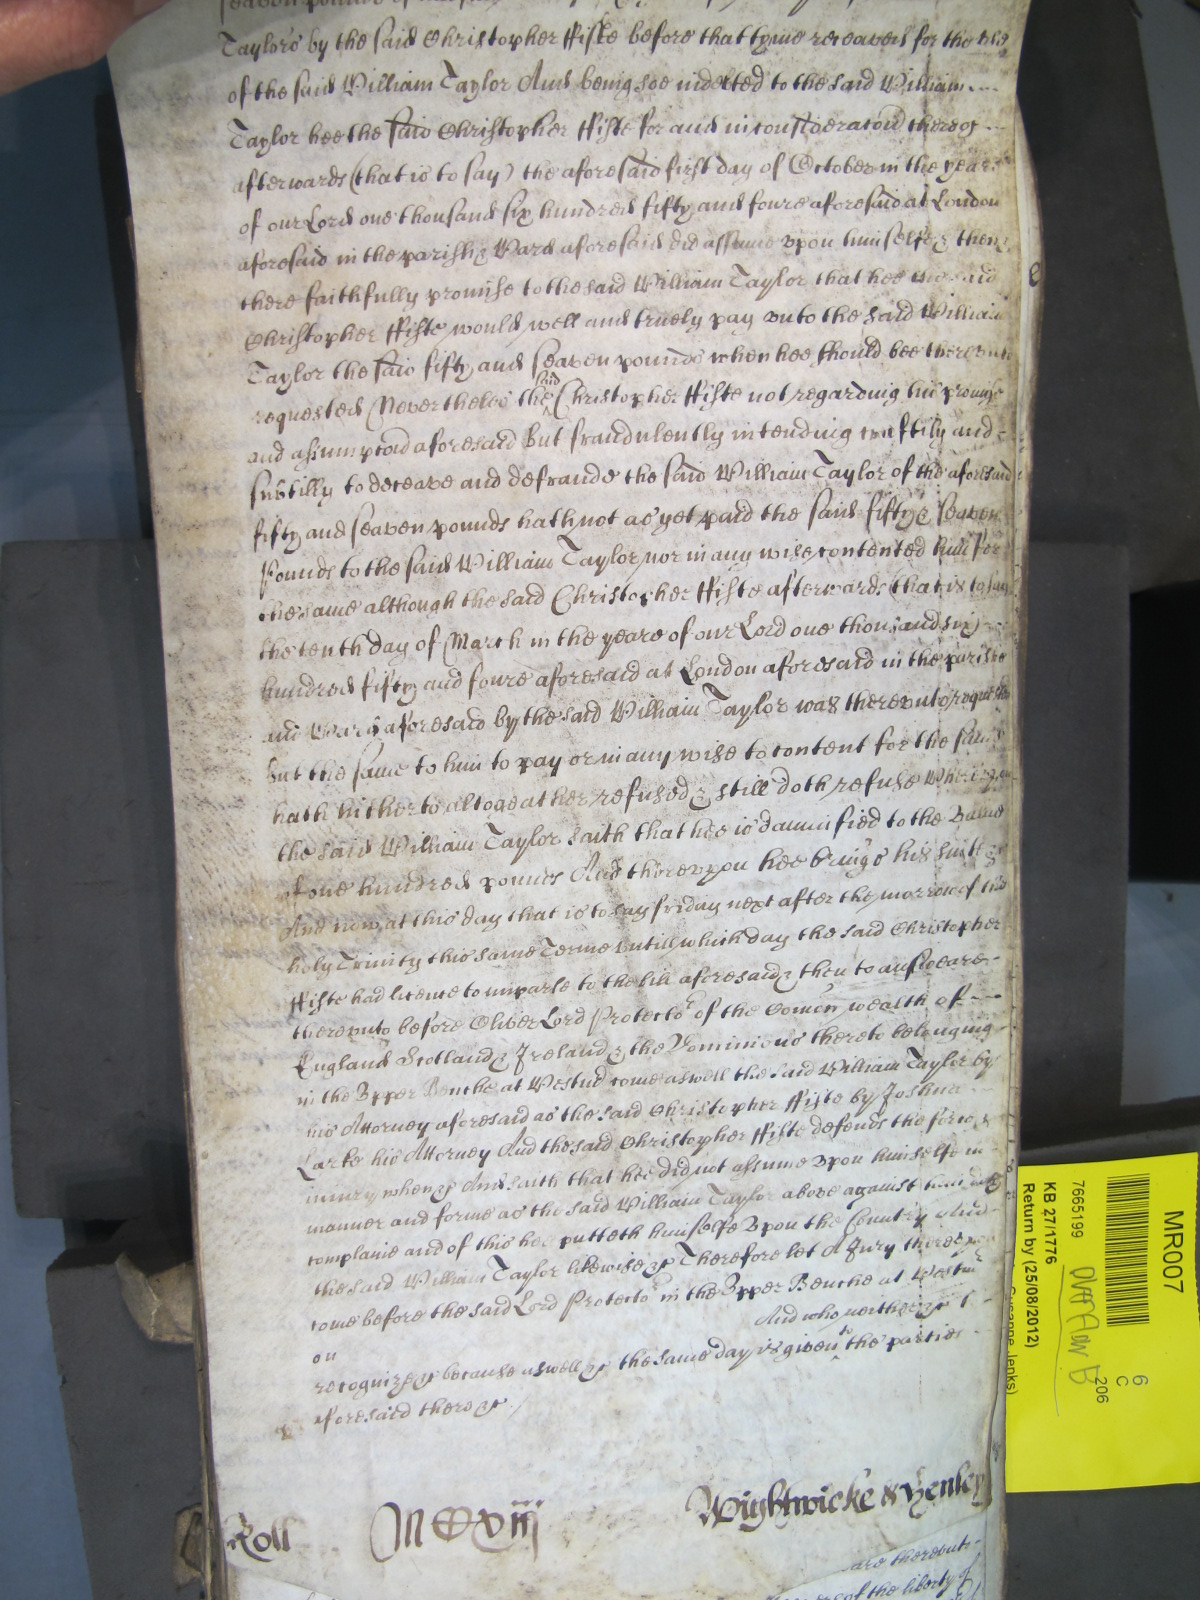 seaven pounds of
Taylors by the said Christopher ffiske before that tyme received for the use
of the said William Taylor And being soe indebted to the said William
Taylor hee the said Christopher ffiske for and in consideracon thereof
afterwards (that is to say) the aforesaid first day of October in the yeare
of our Lord one thousand six hundred fifty and foure aforesaid at London
aforesaid in the parish & Ward aforesaid did assume vpon himselfe & then &
there faithfully promise to the said William Taylor that hee the said
Christopher ffiske would well and truely pay vnto the said William
Taylor the said fifty and seaven pounds when hee should bee therevnto
requested Neverthelesse the said Christopher ffiske not regarding his promise
and assumption aforesaid but fraudulently intending craftily and
subtilly to deceave and defraude the said William Taylor of the aforesaid
fifty and seaven pounds hath not as yet paid the said fifty & seaven
pounds to the said William Taylor nor in any wise contented him for
the same although the said Christopher ffiske afterwards (that is to say)
the tenth day of March in the yeare of our Lord one thousand six
hundred fifty and foure aforesaid at London aforesaid in the parishe
and Ward aforesaid by the said William Taylor was therevnto requested
but the same to him to pay or in any wise to content for the same
hath hitherto altogeather refused & still doth refuse Whereupon
the said William Taylor saith that hee is damnified to the value
of one hundred pounds And therevpon hee brings his suite &c
And now at this day that is to say friday next after the morrow of the
holy Trinity this same Terme vntill which day the said Christopher
ffiske had licence to imparle to the bill aforesaid & then to answeare
therevnto before Oliver Lord Protector of the Comon wealth of
England Scotland & Ireland & the Dominions thereto belonging
in the Vpper Benche at Westm come aswell the said William Taylor by
his Attorney aforesaid as the said Christopher ffiske by Joshua
Larke his Attorney And the said Christopher ffiske defends the force &
iniury when &c And saith that hee did not assume vpon himselfe in
manner and forme as the said William Taylor above against him doth
complaine and of this hee putteth himselfe vpon the Country And
the said William Taylor likewise &c Therefore let a Jury therevpon
come before the said Lord Protector in the Vpper Benche at Westm
on And who neither &c to
recognize &c because aswell &c the same day is given to the parties
aforesaid there &c
Roll MCCxviij Wightwicke & Henley
are therevnto
of the liberty of
MR007
7665199
KB 27/1776
Return by (25/08/2012)
Susanne Jenks)
6
C
206